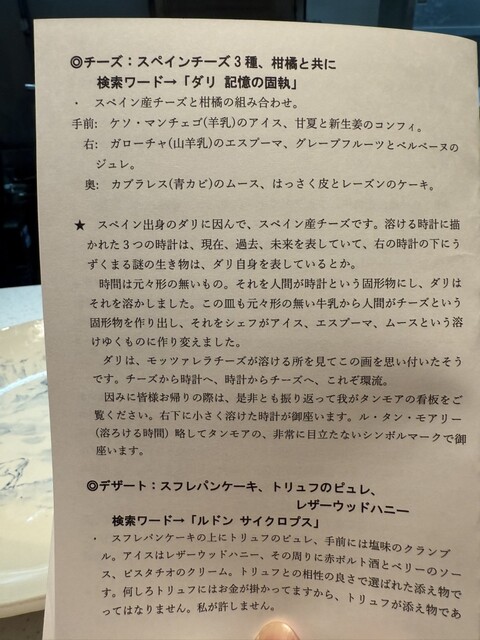 ◎チーズ：スペインチーズ３種、柑橘と共に
検索ワード→「ダリ 記憶の固執」
・ スペイン産チーズと柑橘の組み合わせ。
手前: ケソ・マンチェゴ(羊乳)のアイス、甘夏と新生姜のコンフィ。
右: ガローチャ(山羊乳)のエスプーマ、グレープフルーツとベルベーヌの
ジュレ。
奥: カブラレス(青カビ)のムース、はっさく皮とレーズンのケーキ。
★ スペイン出身のダリに因んで、スペイン産チーズです。溶ける時計に描
かれた３つの時計は、現在、過去、未来を表していて、右の時計の下にう
ずくまる謎の生き物は、ダリ自身を表しているとか。
時間は元々形の無いもの。それを人間が時計という固形物にし、ダリは
それを溶かしました。この皿も元々形の無い牛乳から人間がチーズという
固形物を作り出し、それをシェフがアイス、エスプーマ、ムースという溶
けゆくものに作り変えました。
ダリは、モッツァレラチーズが溶ける所を見てこの画を思い付いたそう
です。チーズから時計へ、時計からチーズへ、これぞ環流。
因みに皆様お帰りの際は、是非とも振り返って我がタンモアの看板をご
覧ください。右下に小さく溶けた時計が御座います。ル・タン・モアリー
(溶ろける時間) 略してタンモアの、非常に目立たないシンボルマークで御
座います。
◎デザート：スフレパンケーキ、トリュフのピュレ、
レザーウッドハニー
検索ワード→「ルドン サイクロプス」
・ スフレパンケーキの上にトリュフのピュレ、手前には塩味のクランブ
ル。アイスはレザーウッドハニー、その周りに赤ポルト酒とベリーのソー
ス、ピスタチオのクリーム。トリュフとの相性の良さで選ばれた添え物で
す。何しろトリュフにはお金が掛かってますから、トリュフが添え物であ
ってはなりません。私が許しません。